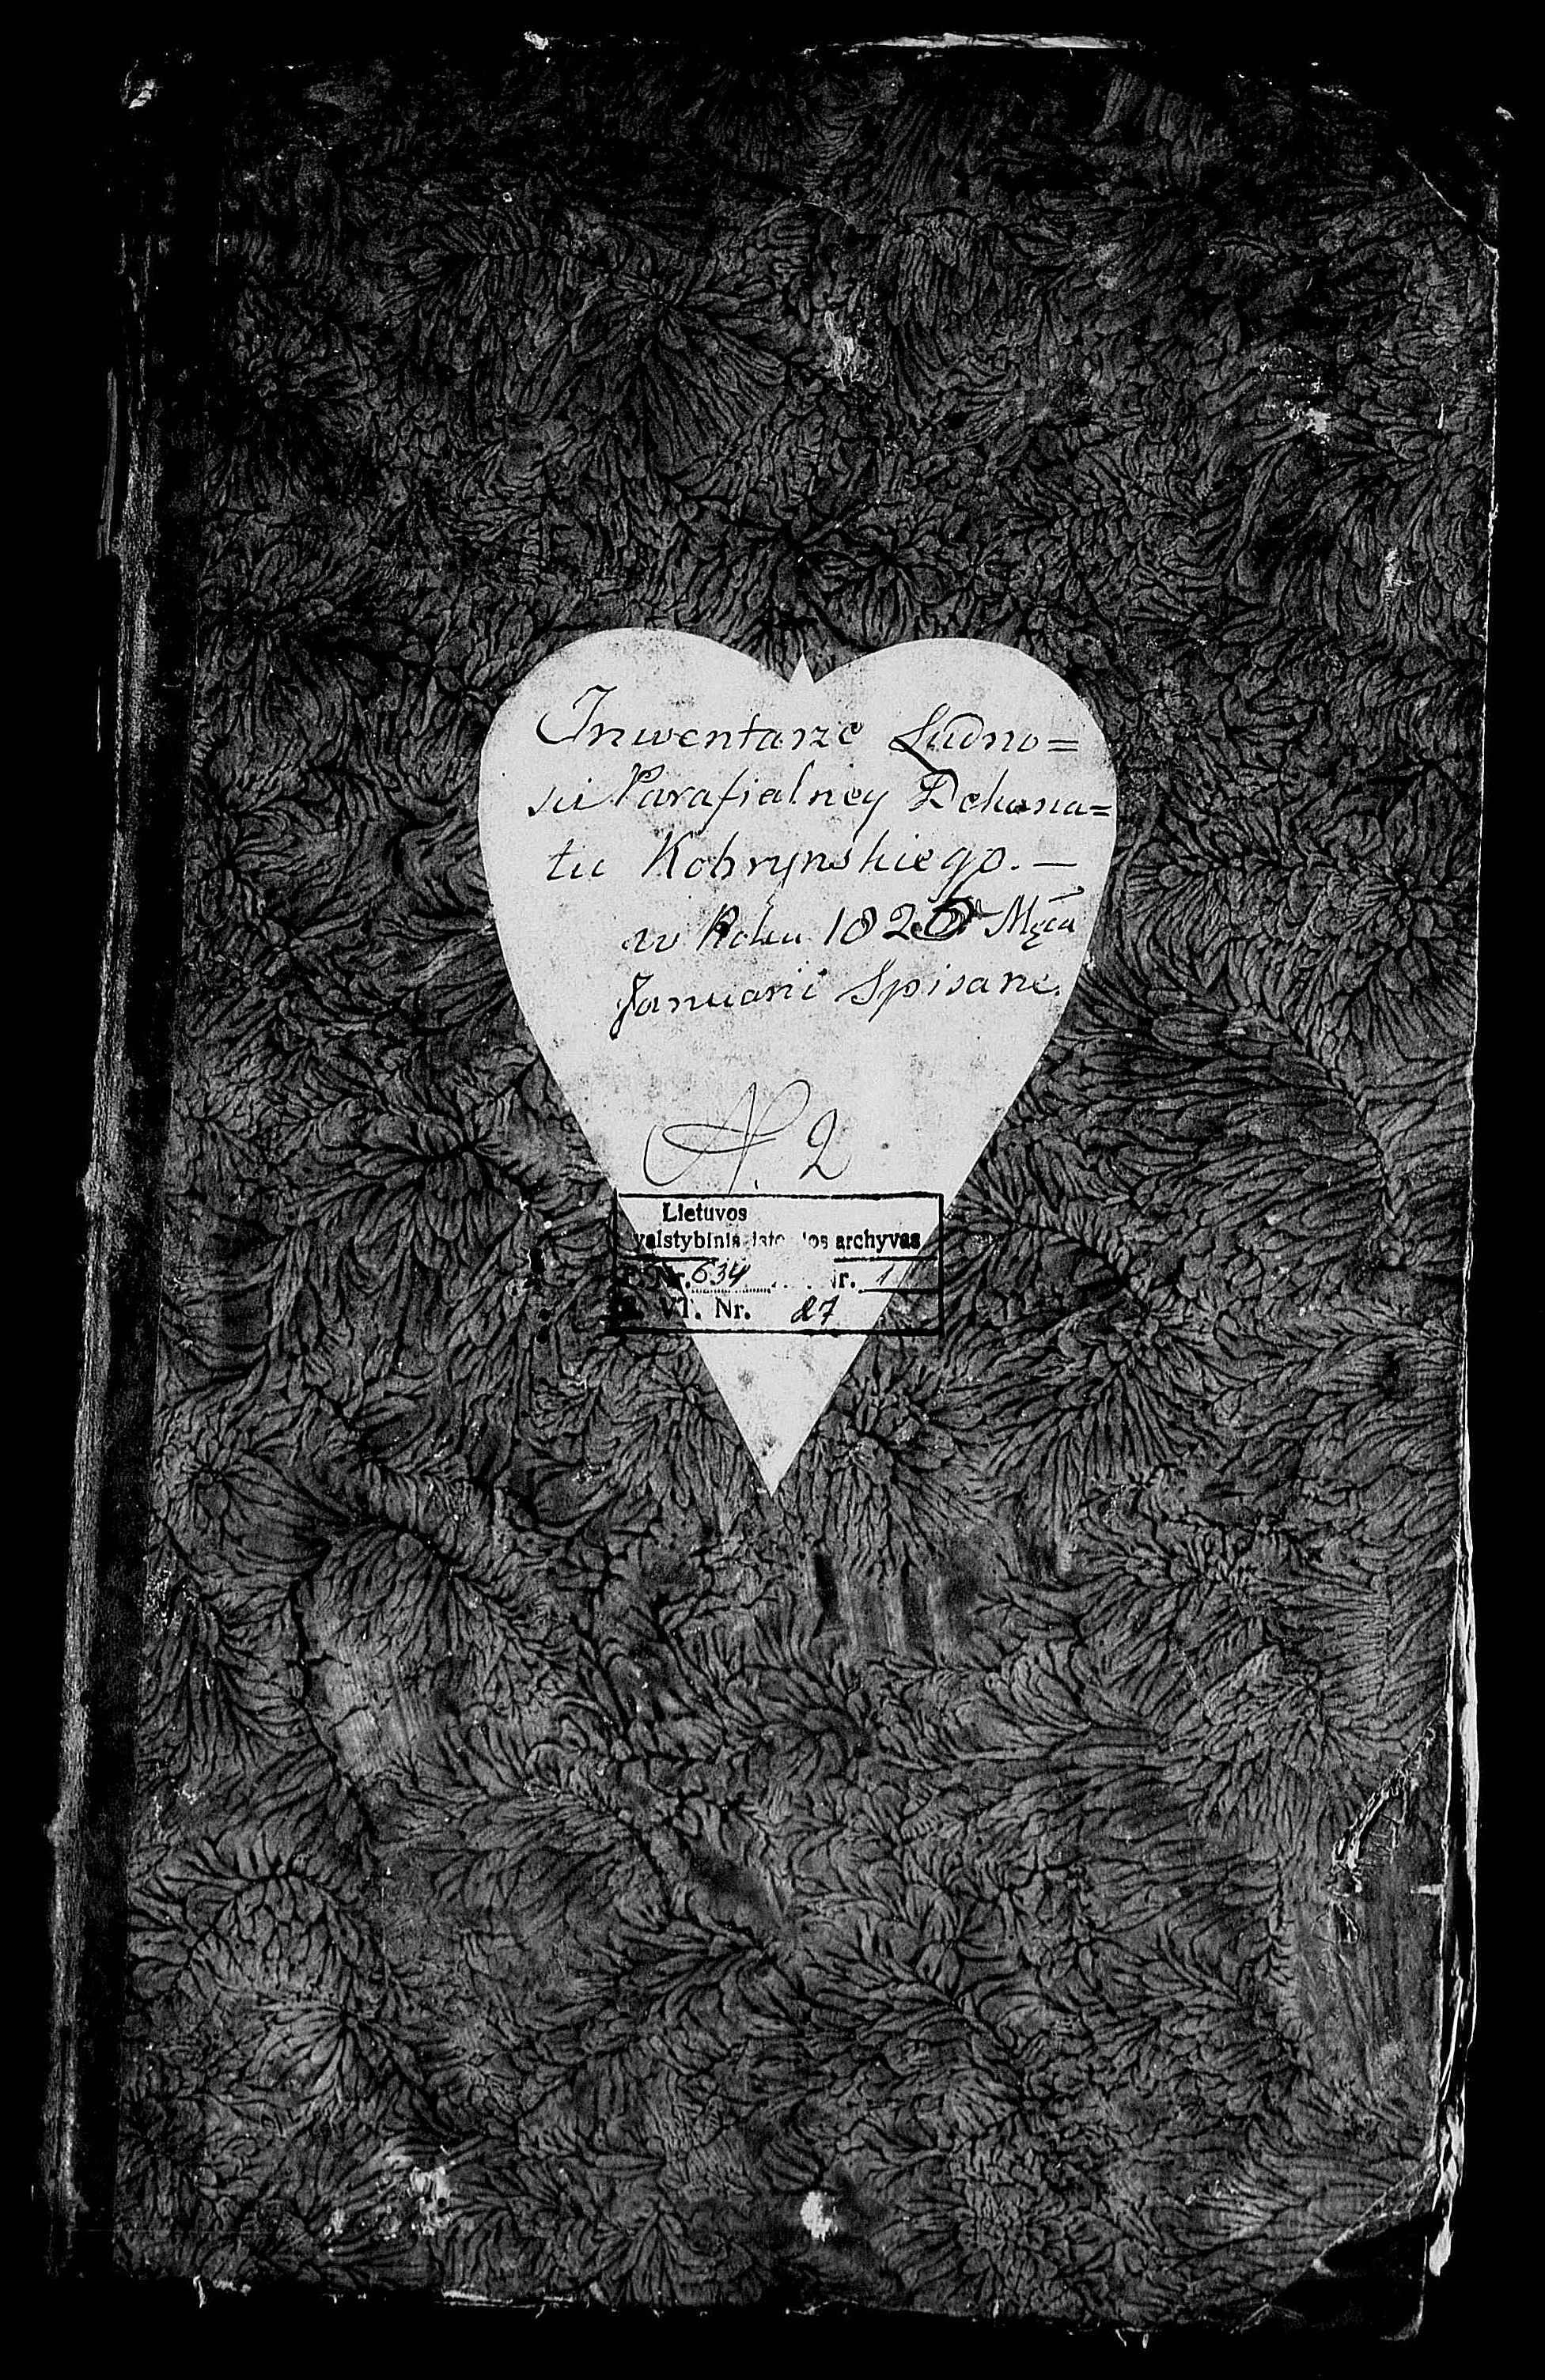 Inwentarze Ludno=
sci Parafialney Dekana=
tu Kobrynskiego.—
w Roku 1826 Mca
Januarii Spisane.
N. 2
Lietuvos
valstybinis istorijos archyvas
F. Nr. 634 Nr. 1
VT. Nr. 27